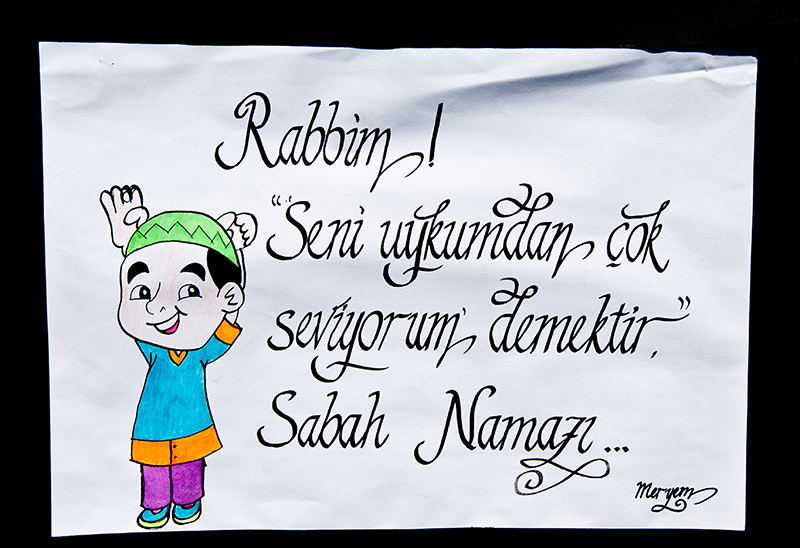 Rabbim !
"Seni uykumdan çok
seviyorum demektir,"
Sabah Namazı...
Meryem